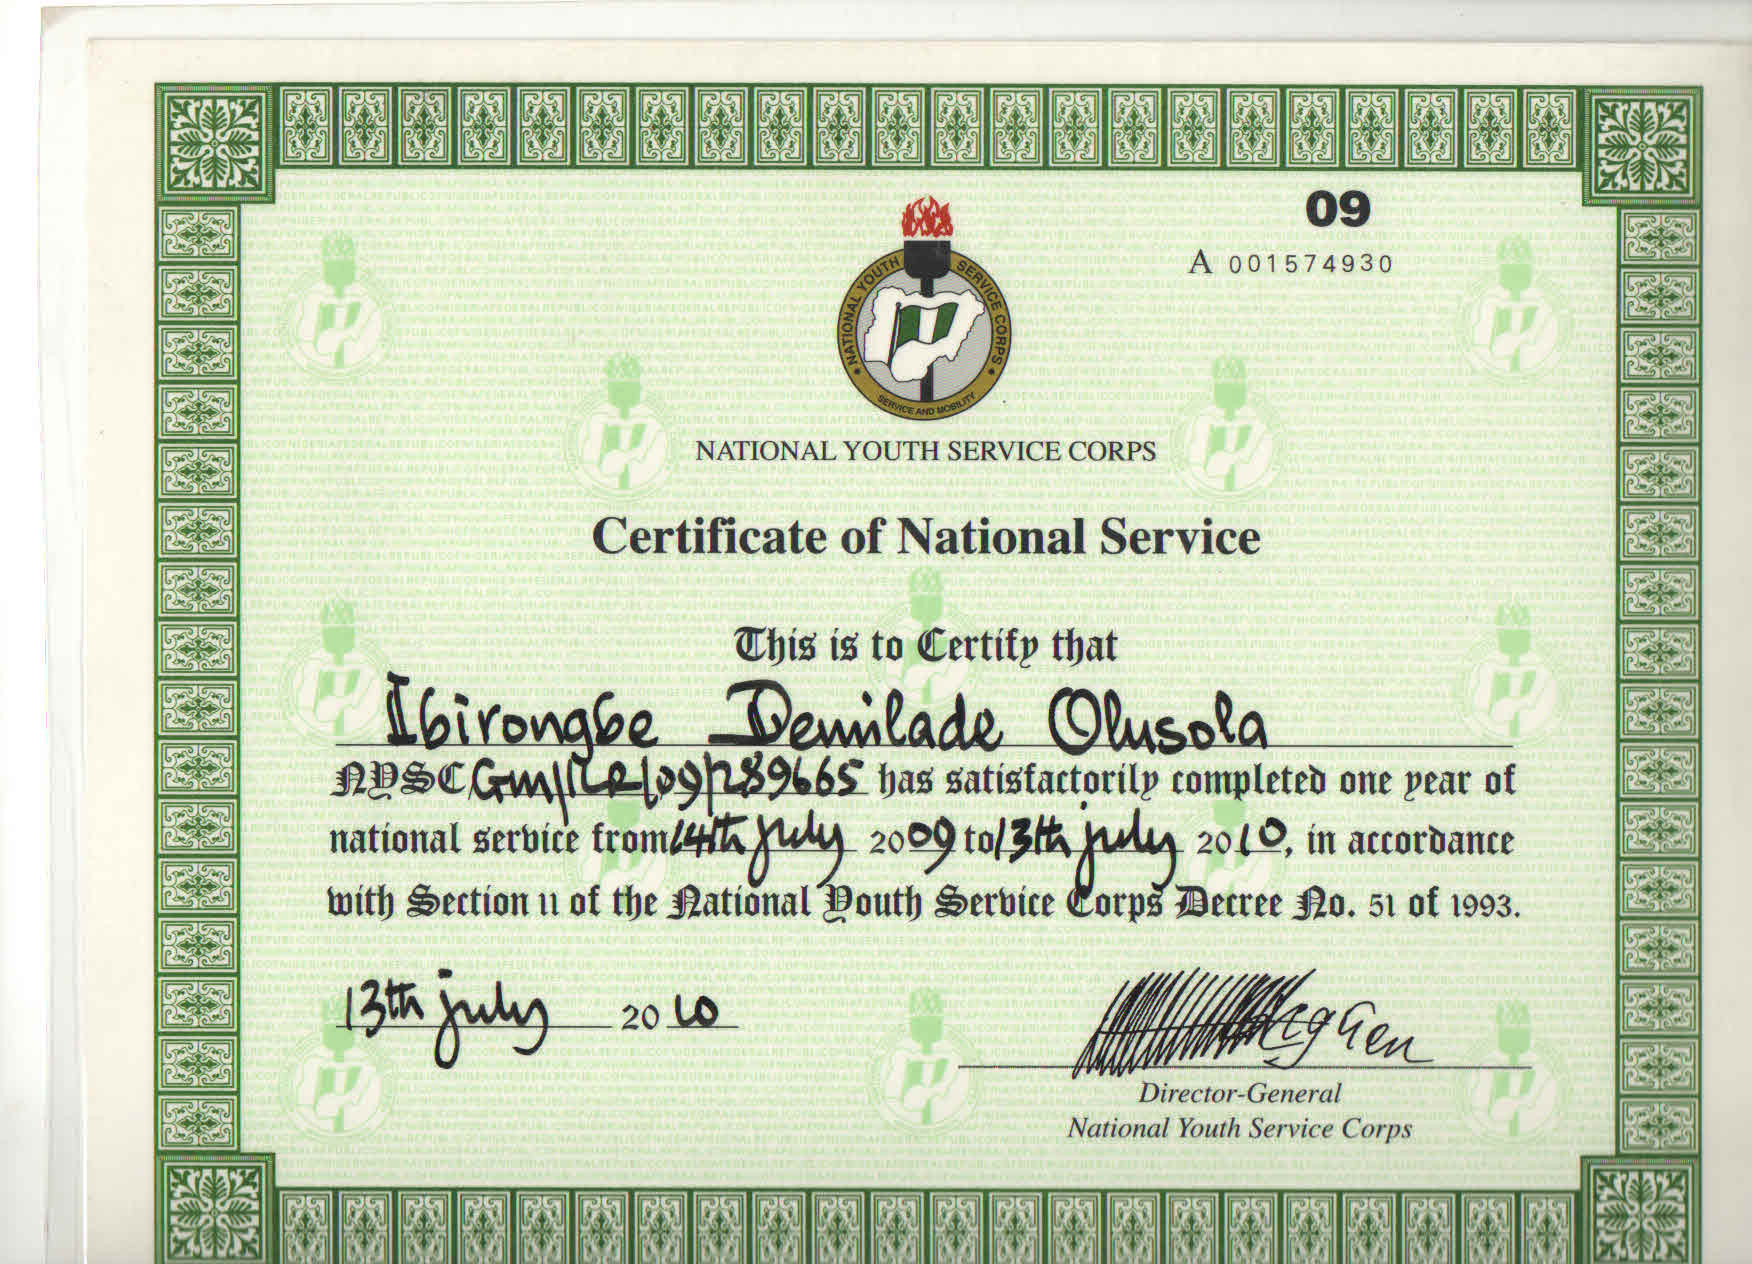 09
A 001574930
NATIONAL YOUTH SERVICE CORPS
SERVICE AND MOBILITY
NATIONAL YOUTH SERVICE CORPS
Certificate of National Service
This is to Certify that
Ibirongbe Demilade Olusola
NYSC GM/ /09/1289665 has satisfactorily completed one year of
national service from 14th july 2009 to 13th july 2010, in accordance
with Section 11 of the National Youth Service Corps Decree No. 51 of 1993.
13th july 2010
Director-General
National Youth Service Corps